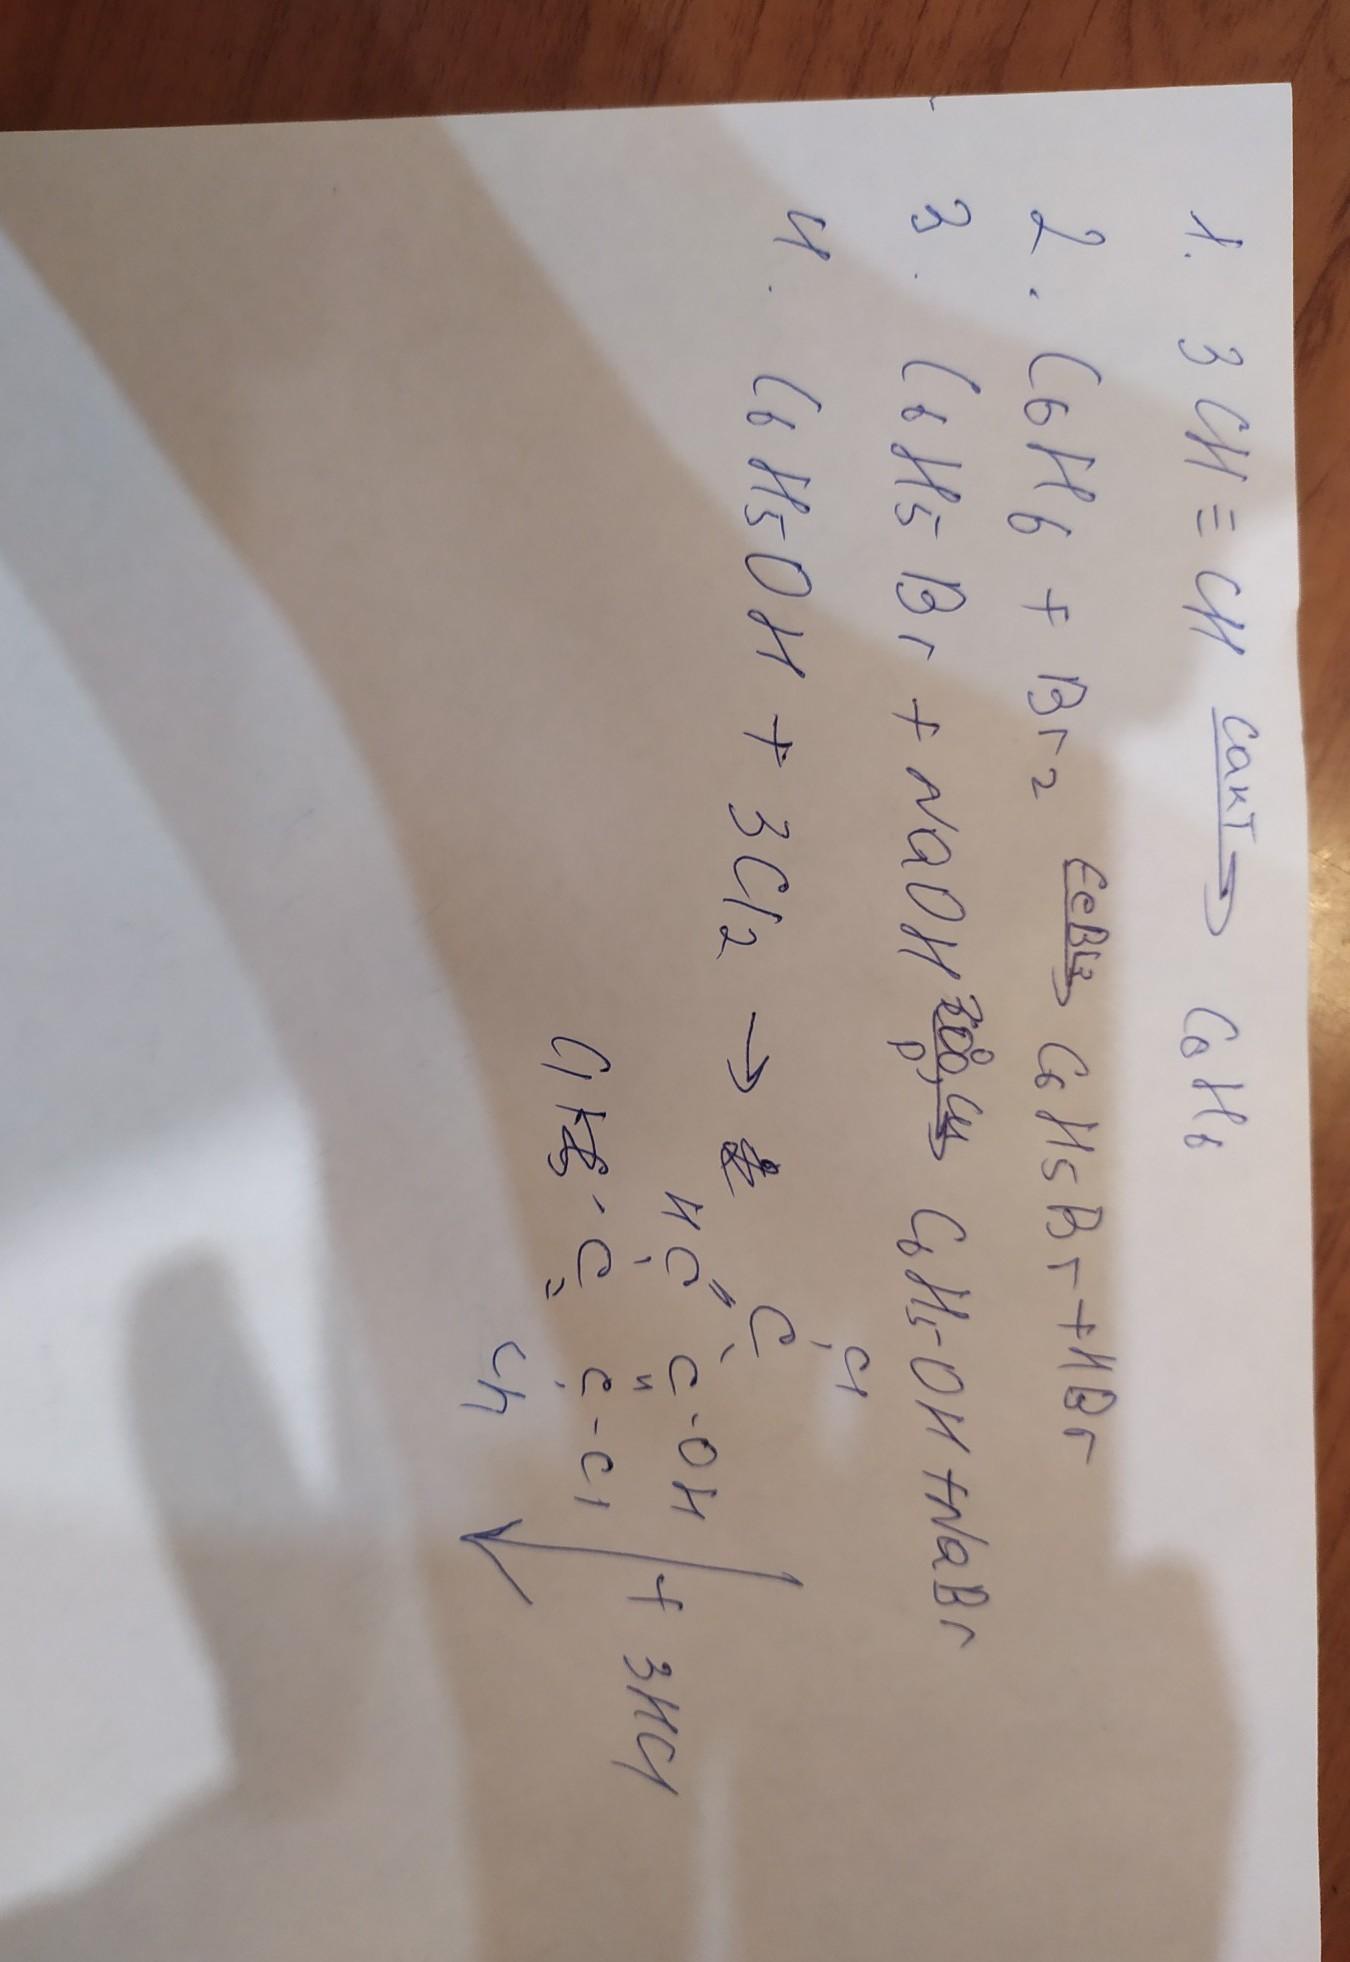 1. 3CH≡CH Cакт→ C6H6
2. C6H6 + Br2 FeBr3→ C6H5Br+HBr
3. C6H5Br + NaOH 300°, Cu, p→ C6H5-OH+NaBr
4. C6H5OH + 3Cl2 →
Cl
C
HC C-OH
C C-Cl + 3HCl